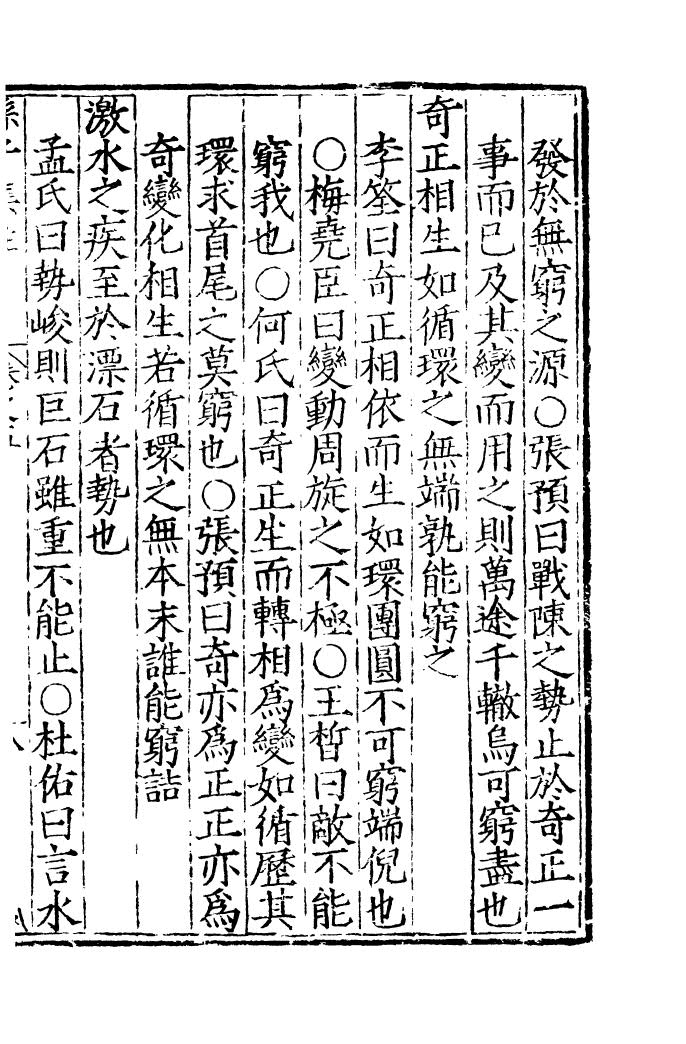 發於無窮之源○張預曰戰陳之勢止於奇正一
事而已及其變而用之則萬途千轍烏可窮盡也
奇正相生如循環之無端孰能窮之
李筌曰奇正相依而生如環團圓不可窮端倪也
○梅堯臣曰變動周旋之不極○王晳曰敵不能
窮我也○何氏曰奇正生而轉相爲變如循歷其
環求首尾之莫窮也○張預曰奇亦爲正正亦爲
奇變化相生若循環之無本末誰能窮詰
激水之疾至於漂石者勢也
孟氏曰勢峻則巨石雖重不能止○杜佑曰言水